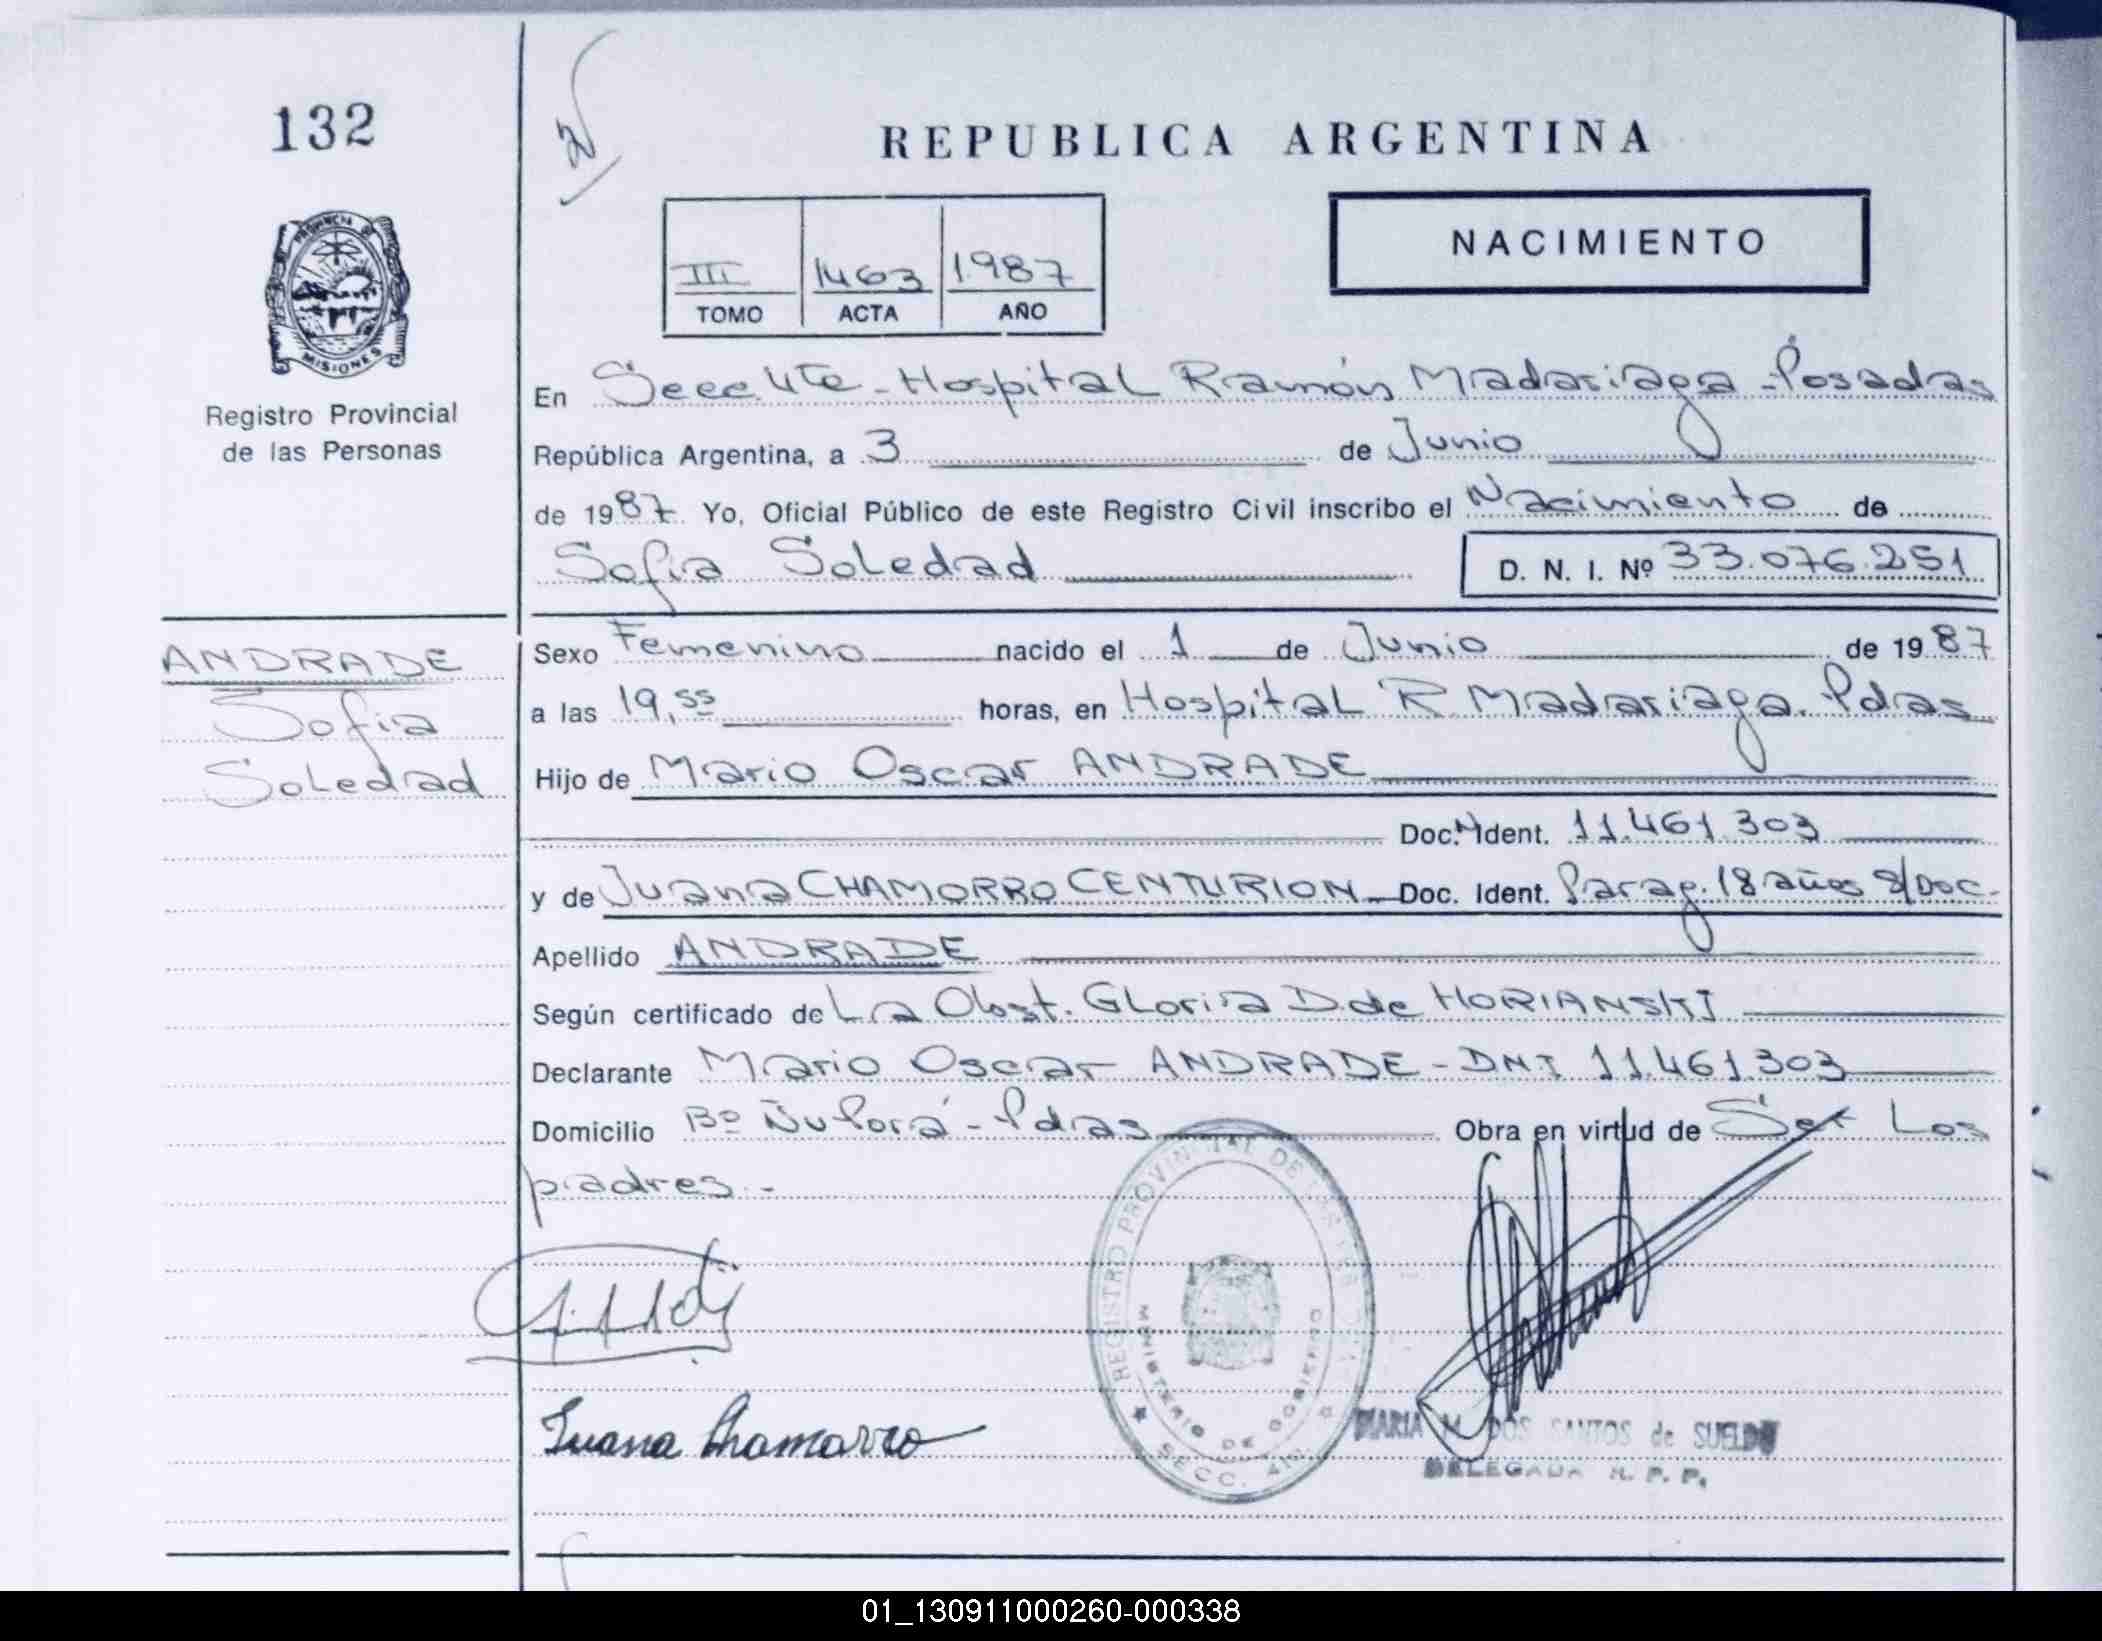 132
REPUBLICA ARGENTINA
NACIMIENTO
III 1463 1987
TOMO ACTA AÑO
PROVINCIA DE
MISIONES
Registro Provincial
de las Personas
En Secc. 4ta - Hospital Ramón Madariaga - Posadas
República Argentina, a 3 de Junio
de 1987. Yo, Oficial Público de este Registro Civil inscribo el Nacimiento de
Sofia Soledad D. N. I. Nº 33.076.251
ANDRADE
Sofia
Soledad
Sexo Femenino nacido el 1 de Junio de 1987
a las 19,55 horas, en Hospital R. Madariaga. Pdas
Hijo de Mario Oscar ANDRADE
Doc. N Ident. 11.461.303
y de Juana CHAMORRO CENTURION Doc. Ident. Parag. 18 años s/Doc.
Apellido ANDRADE
Según certificado de La Obst. Gloria D. de HORIANSKI
Declarante Mario Oscar ANDRADE - DNI 11.461.303
Domicilio Bº Ñu Porá - Pdas Obra en virtud de Ser Los
padres.-
REGISTRO PROVINCIAL DE LAS PERSONAS
MINISTERIO DE GOBIERNO
SECC. 4ta
Juana Chamorro
MARIA M DOS SANTOS de SUELDO
DELEGADA R. P. P.
01_130911000260-000338